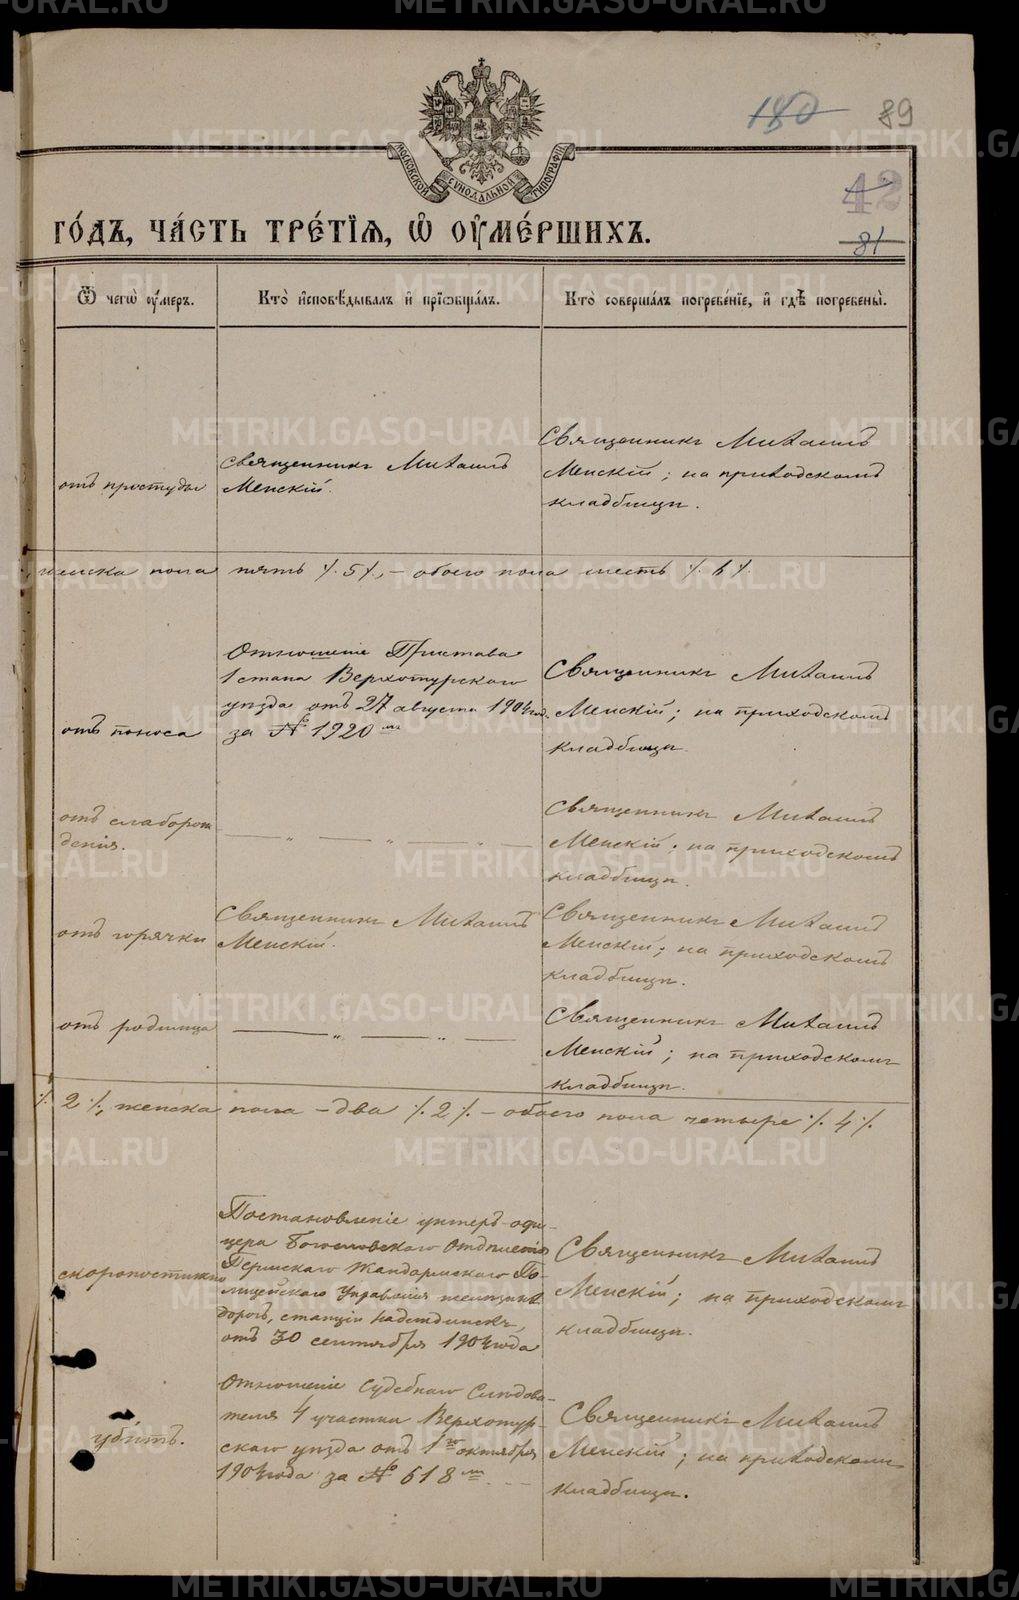 180 89
МОСКОВСКОЙ СѴНОДАЛЬНОЙ ТИПОГРАФІИ
42
81
ГО́ДЪ, ЧА́СТЬ ТРЕ́ТІѦ, Ѡ ОУМЕ́РШИХЪ.
Ѿ чегѡ̀ оу́меръ.
Кто̀ и҆сповѣ́дывалъ и҆ прїѡбща́лъ.
Кто̀ соверша́лъ погребе́нїе, и҆ гдѣ̀ погребены̀.
отъ простуды
Священникъ Михаилъ
Менскій.
Священникъ Михаилъ
Менскій; на приходскомъ
кладбищѣ.
женска пола пять /.5/., – обоего пола шесть /.6/.
отъ поноса
Отношеніе Пристава
1 стана Верхотурскаго
уѣзда отъ 27 августа 1904 год.
за № 1920 мъ
Священникъ Михаилъ
Менскій; на приходскомъ
кладбищѣ.
отъ слаборож
денія.
— „ — „ — „ —
Священникъ Михаилъ
Менскій; на приходскомъ
кладбищѣ.
отъ горячки
Священникъ Михаилъ
Менскій.
Священникъ Михаилъ
Менскій; на приходскомъ
кладбищѣ.
отъ родимца
— „ — „ —
Священникъ Михаилъ
Менскій; на приходскомъ
кладбищѣ.
/. 2 /., женска пола – два /. 2 /. – обоего пола четыре /. 4 /.
скоропостижно
Постановленіе унтеръ-офи-
цера Богословскаго Отдѣленія
Пермскаго Жандармскаго По-
лицейскаго Управленія желѣзныхъ
дорогъ, станціи Надеждинскъ,
отъ 30 сентября 1904 года
Священникъ Михаилъ
Менскій; на приходскомъ
кладбищѣ.
убитъ.
Отношеніе Судебнаго Слѣдова-
теля 4 участка Верхотур-
скаго уѣзда отъ 1го октября
1904 года за № 618 мъ
Священникъ Михаилъ
Менскій; на приходскомъ
кладбищѣ.
METRIKI.GASO-URAL.RU